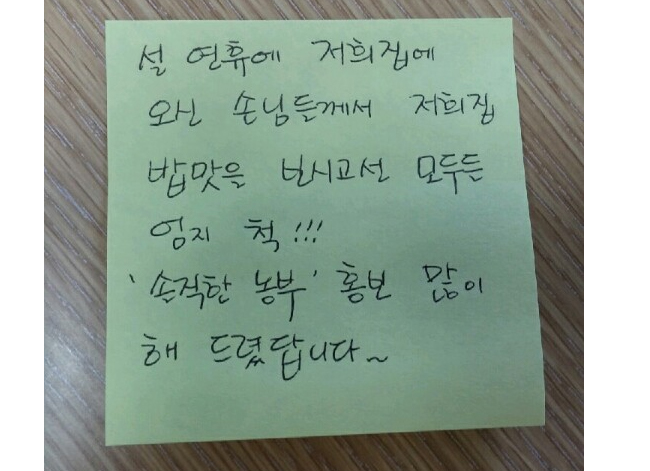 설 연휴에 저희집에
오신 손님들께서 저희집
밥맛을 보시고선 모두들
엄지 척!!!
'손적한 농부' 홍보 많이
해 드렸답니다~